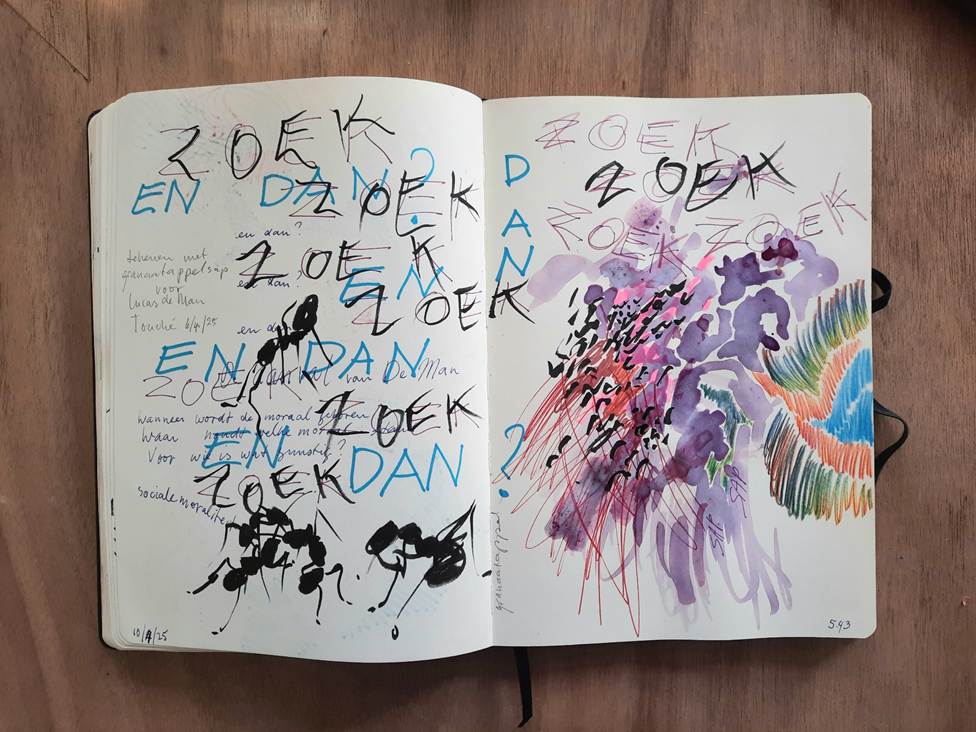 ZOEK
EN DAN?
ZOEK
en dan?
ZOEK
tekenen met
granaatappelsap
voor
Lucas de Man
Touché 6/4/25
en dan?
EN
ZOEK
en dan?
EN DAN
ZOEK
van De Man
ZOEK
wanneer wordt de moraal geboren
waar houdt welke moraal
EN DAN?
Voor wie is wat gunstig?
ZOEK
sociale moraliteit
10/4/25
DAN
ZOEK
ZOEK
ZOEK
ZOEK
ZOEK
SAP
SAP
granaatappel
543